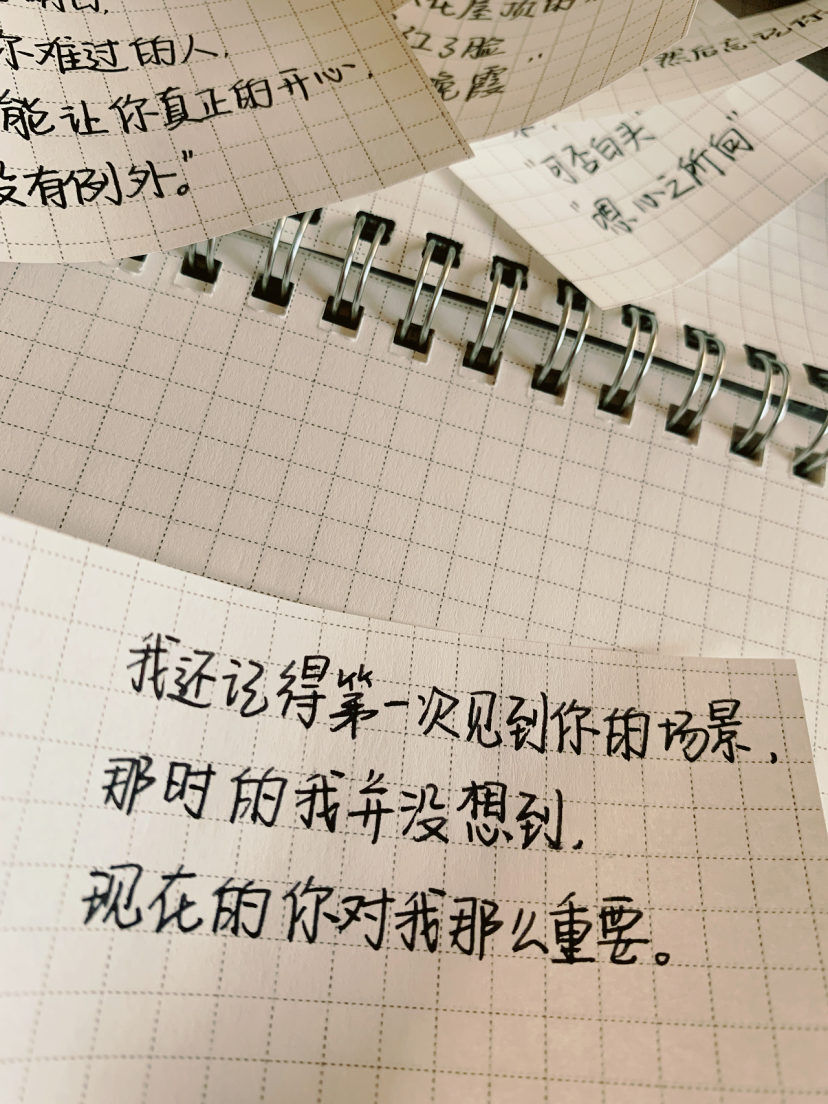 你难过的人，
能让你真正的开心，
没有例外。”
在屋顶的
红了脸
晚霞
然后忘记你
“可否白头”
“愿心之所向”
我还记得第一次见到你的场景，
那时的我并没想到，
现在的你对我那么重要。